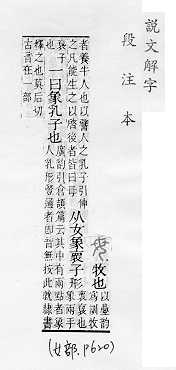 說文解字
段注本
牧也以曡韵
爲訓牧
者養牛人也以譬人之乳子引伸
之凡能生之以啓後者皆曰母
从女象褱子形
褱裹也
象兩手
裹子
也
一曰象乳子也
廣韵引倉頡篇云其中有兩點者象
人乳形豎通者卽音無按此就隷書
釋之也莫后切
古音在一部
(女部.P620)